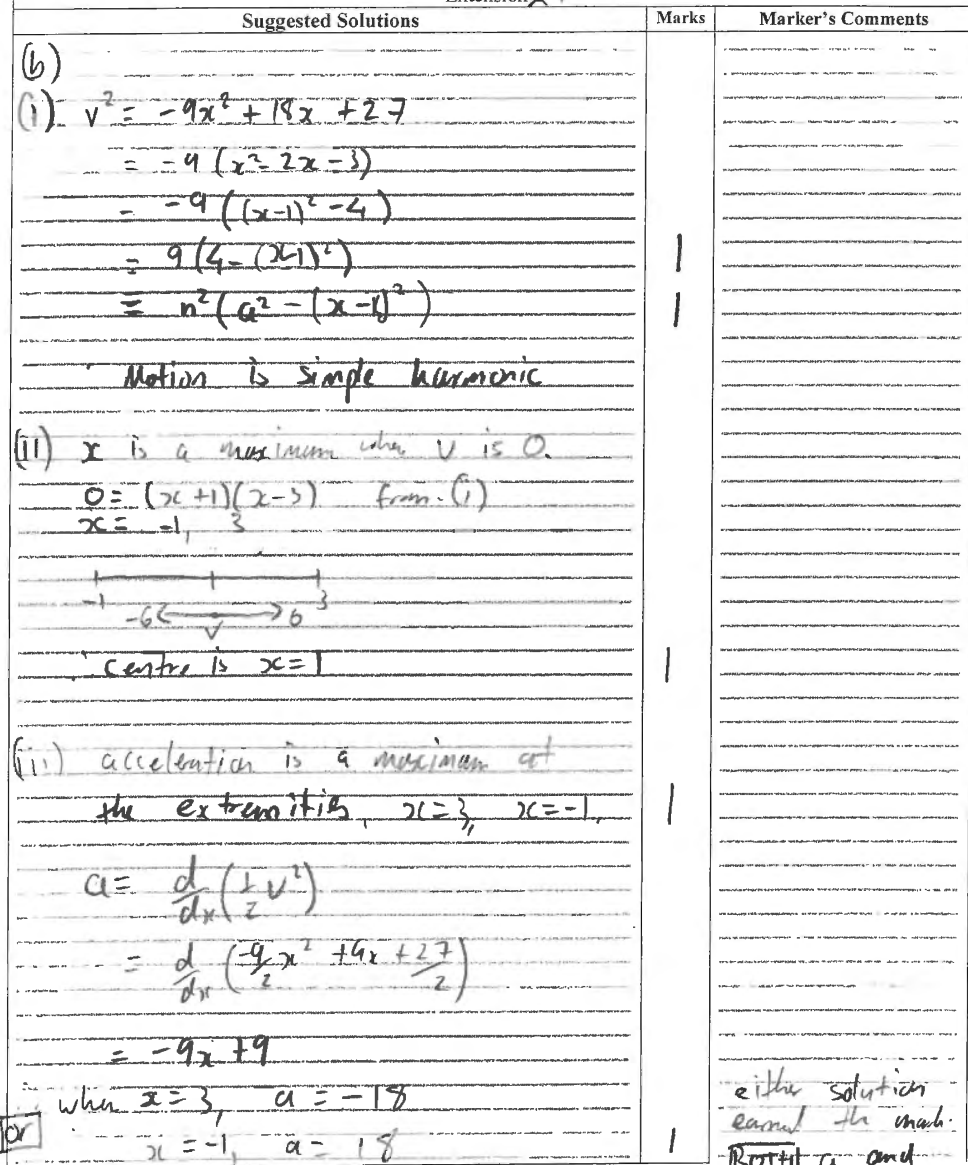 Suggested Solutions Marks Marker's Comments
(b)
(i) v² = -9x² + 18x + 27
= -9 (x² - 2x - 3)
= -9 ((x-1)² - 4)
= 9 (4 - (x-1)²) 1
= n² (a² - (x-1)²) 1
Motion is simple harmonic
(ii) x is a maximum when v is 0.
0 = (x+1)(x-3) from (i)
x = -1, 3
-1 3
-6 ← → 6
v
centre is x=1 1
(iii) acceleration is a maximum at
the extremities, x=3, x=-1, 1
a = d/dx (1/2 v²)
= d/dx (-9/2 x² + 9x + 27/2)
= -9x + 9
when x=3, a = -18 either solution
or x = -1, a = 18 1 earned the mark.
and